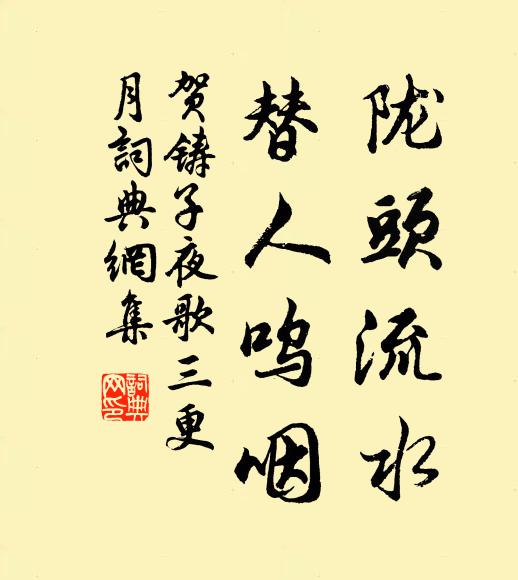 陇頭流水
替人呜咽
贺鑄子夜歌三更
月詞典網集
詞典
网印